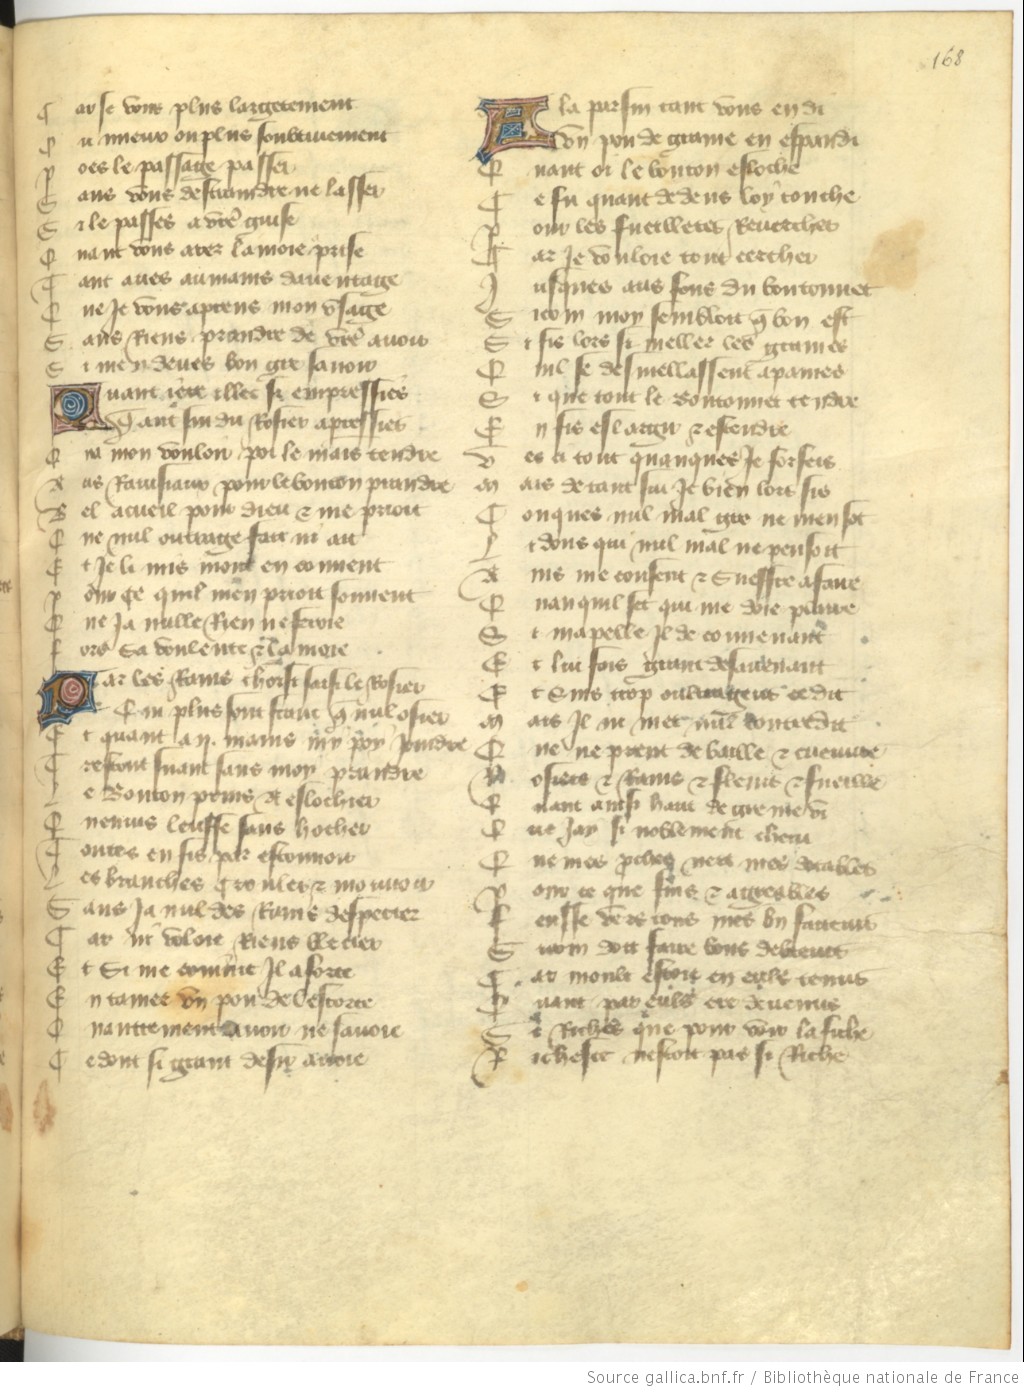 168
Car se vous plus largetement
Ou mieux ou plus soubtivement
Poes le passage passer
Sans vous destraindre ne lasser
Si le passes a vre guise
Quant vous avez la moie prise
Tant aves aumains daventage
Que Je vous aprens mon usage
Sans Riens prandre de vre avoir
Si men deves bon gre savoir
Quant iere illec si empressies
Tant fui du Rosier apressies
Qua mon vouloir poi le mais tendre
As Rainsiaux pour le bouton prandre
Bel acueil pour dieu & me prioit
Que nul oultrage fait ni ait
Et Je li mis mont en convent
Pour ce quil men prioit souvent
Que Ja nulle Rien ne feroie
Fors Sa voulente & la moie
Par les Rains saisi le Rosier
Qui plus sont franc q nul osier
Et quant a .ii. mains my poy joindre
Trestout suant sans moy prandre
Le Bouton prins a eslochier
Quenvis leusse sans hocher
Toutes en fis par estouvoir
Les branches Crouler & mouvoir
Sans Ja nul des Rains despecier
Car ni voloie Riens blecier
Et Si me convint Il a force
Entamer un pou de lescorce
Quautrement avoir ne savoie
Ce dont si grant desir avoie
A la parfin tant vous en di
Un pou de graine en espandi
Quant oi le bouton esloche
Ce fu quant dedens loy touche
Pour les fueilletes Reverchier
Car Je vouloie tout cercher
Jusques aus fons du boutonnet
Sicom moy sembloit q bon est
Si fis lors si meller les graines
Quil se desmellassent a paines
Si que tout le Boutonnet tendre
En fis eslargir & estendre
Ves ci tout quanques Je forfeis
Mais de tant fui Je bien lors fis
Conques nul mal gre ne men sot
Li dous qui nul mal ne pensoit
Ains me consent & Sueffre a faire
Quanquil set qui me doie plaire
Si mapelle Il de convenant
Et lui fois grant desavenant
Et Suis trop oultrageus ce dit
Mais Il ni met nul contredit
Que ne prent de baille & cueuille
Rosiers & Rains & fleurs & fueille
Quant ainsi haut degre me vi
Que Jay si noblement chevi
Que mes pches nert mes doutables
Pour ce que fins & aggreables
Feusse vers tous mes bn faicteurs
Si com doit faire bons debteurs
Car moult estoit en euls tenus
Quant par euls ere devenus
Si Riches que pour voir la fiche
Richesce nestoit pas si Riche
Source gallica.bnf.fr / Bibliothèque nationale de France